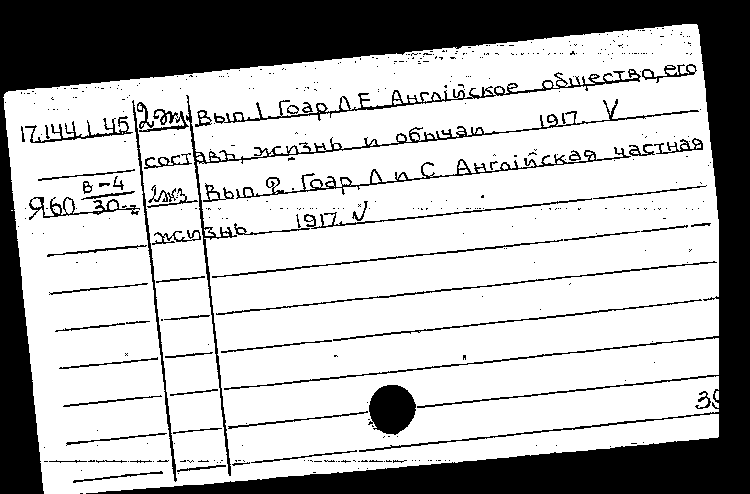 17.144.1.45 2 экз. Вып. 1. Гоар, Л.Е. Англійское общество, его
составъ, жизнь и обычаи. 1917. V
Я60 В-4/30-z 2экз Вып. 2. Гоар, Л и С. Англійская частная
жизнь. 1917. V
39